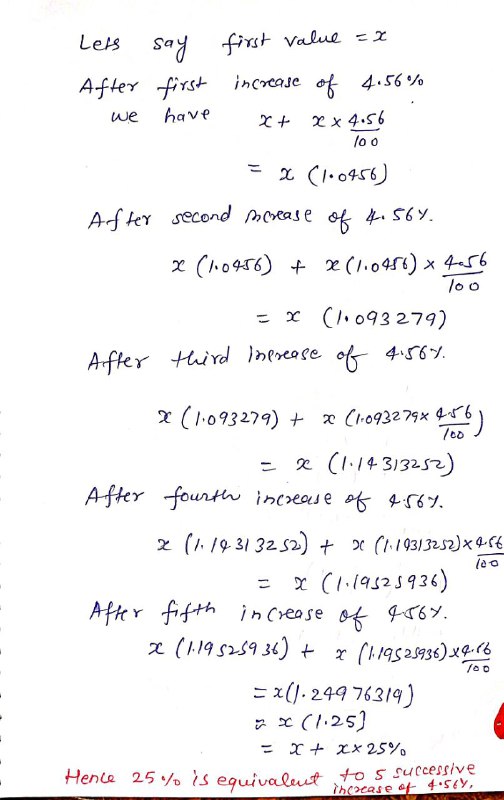 Lets say first value = x
After first increase of 4.56%
we have x + x × 4.56/100
= x (1.0456)
After second increase of 4.56%.
x (1.0456) + x (1.0456) × 4.56/100
= x (1.093279)
After third increase of 4.56%.
x (1.093279) + x (1.093279 × 4.56/100)
= x (1.14313252)
After fourth increase of 4.56%.
x (1.14313252) + x (1.14313252) × 4.56/100
= x (1.19525936)
After fifth increase of 4.56%.
x (1.19525936) + x (1.19525936) × 4.56/100
= x (1.24976319)
≈ x (1.25)
= x + x × 25%
Hence 25% is equivalent to 5 successive
increase of 4.56%.